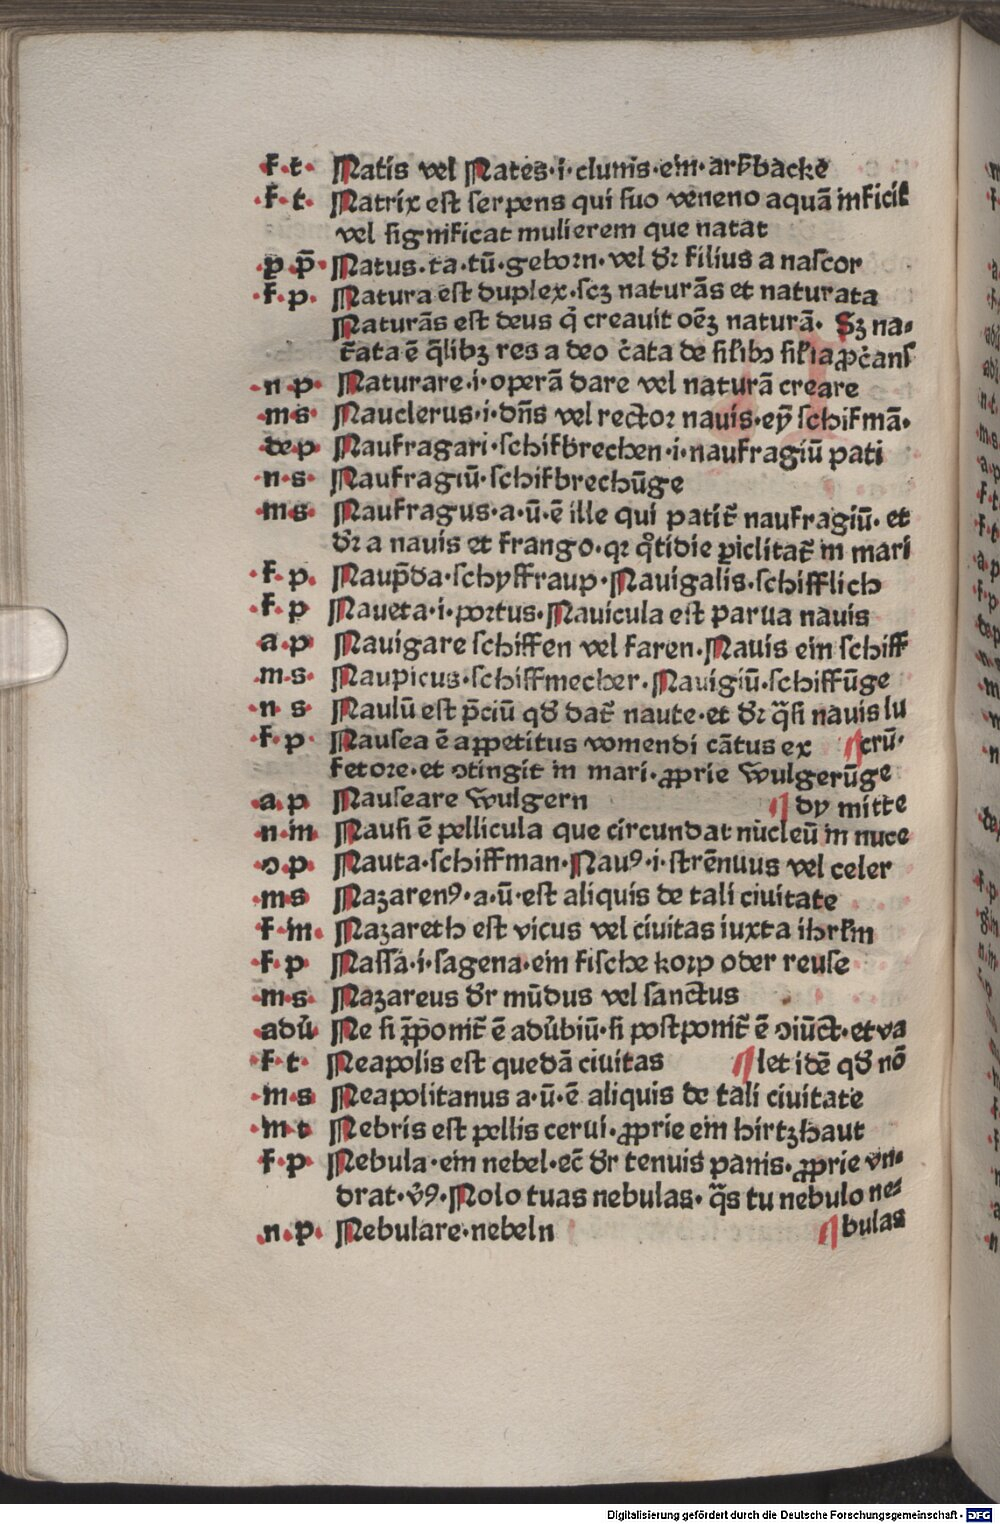 f·t· Natis vel Nates·i·clunis·ein·arſbacke
·f·t· Natrix eſt ſerpens qui ſuo veneno aquā inficit
vel ſignificat mulierem que natat
·p·p̄· Natus·ta·tū·geborn·vel dr̄ filius a naſcor
·f·p· Natura eſt duplex·ſcꝫ naturās et naturata
Naturās eſt deus q̇ creauit oēꝫ naturā· Sꝫ na⸗
t̄ata ē q̄libꝫ res a deo c̄ata de
·n·p· Naturare·i·operā dare vel naturā creare
·m·s· Nauclerus·i·dn̄s vel rector nauis·eyn̄ ſchifmā·
·de·p Naufragari·ſchifbrechen·i·naufragiū pati
·n·s· Naufragiū·ſchifbrechūge
·m·s· Naufragus·a·ū·ē ille qui patit̄ naufragiū·et
dr̄ a nauis et frango·qꝛ qͦtidie ꝑiclitat̄ in mari
·f·p· Naup̄da·ſchyffraup·Nauigalis·ſchifflich
·f·p Naueta·i·portus·Nauicula eſt parua nauis
a·p Nauigare ſchiffen vel faren·Nauis ein ſchiff
·m·s· Naupicus·ſchiffmecher·Nauigiū·ſchiffūge
·n·s Naulū eſt p̄ciū qd̄ dat̄ naute·et dr̄ q̄ſi nauis lu
·f·p· Nauſea ē appetitus vomendi cātus ex ¶crū·
fetore·et ↄtingit in mari·ꝓprie wulgerūge
·a·p Nauſeare wulgern ¶ dy mitte
·n·m Nauſi ē pellicula que circundat nucleū in nuce
·ↄ·p· Nauta·ſchiffman·Nauꝰ·i·ſtrēnuus vel celer
·m·s Nazarenꝰ·a·ū·eſt aliquis de tali ciuitate
f·m· Nazareth eſt vicus vel ciuitas iuxta ihrlm
·f·p Naſſa·i·ſagena·ein fiſche korp oder reuſe
·m·s· Nazareus dr̄ mūdus vel ſanctus
adū Ne ſi p̄ponit̄ ē adūbiū·ſi poſtponit̄ ē ↄiūct·et va
·f·t· Neapolis eſt quedā ciuitas ¶let idē qd̄ nō
·m·s Neapolitanus a·ū·ē aliquis de tali ciuitate
·m·t Nebris eſt pellis cerui·ꝓprie ein hirtzhaut
f·p· Nebula·ein nebel·ec̄ dr̄ tenuis panis·ꝓprie vn⸗
drat·v̄ꝰ·Nolo tuas nebulas·q̄s tu nebulo ne⸗
·n·p· Nebulare·nebeln ¶bulas
Digitalisierung gefördert durch die Deutsche Forschungsgemeinschaft - DFG